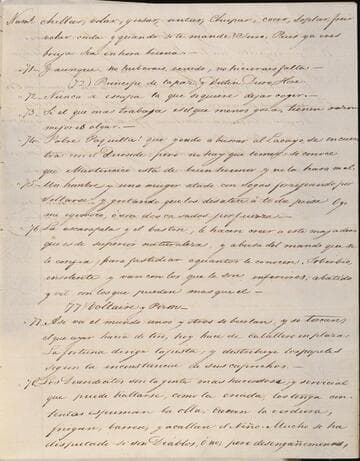 chillar, volar, guisar, untar, chupar, cocer, soplar, freir
cada y quando se te mande? Juro. Pues ya eres
bruja. Sea en hora buena.—
71.— Y aunque no hubierais venido, no hicierais falta.—
72) Principe de la paz y
72. Nunca se escapa la que se quiere dejar coger.—
73. Si el que mas trabaja es el que menos goza, tienen razon
mejor es olgar.—
74. Pobre Paquilla! que yendo a buscar al Lacayo se encuen-
tra con el duende; pero no hay que temer, se conoce
que Martinico esta de buen humor y no la hara mal.
75. Un hombre y una muger atados con sogas forcejeando por
soltarse, y gritando que los desaten a toda prisa? O yo
me equivoco, o son dos casados por fuerza.—
76. La escarapela y el baston, le hacen creer a este majadero
que es de superior naturaleza, y abusa del mando que se
le confia, para fastidiar a quantos le conocen. Soberbio
insolente y vano con los que le son inferiores, abatido
y vil con los que pueden mas que el.—
77 Voltaire y Piron.—
77. Asi va el mundo unos y otros se burlan, y se torean;
el que ayer hacia de toro, hoy hace de caballero en plaza.
La fortuna dirige la fiesta, y distribuye los papeles
segun la inconstancia de sus caprichos.—
78. Los Duendecitos son la gente mas hacendosa y servicial
que puede hallarse, como la criada, los tenga con-
tentos espuman la olla, cuecen la verdura,
friegan, barren, y acallan el Niño. Mucho se ha
disputado si son Diablos, ó no, pero desengañemonos,